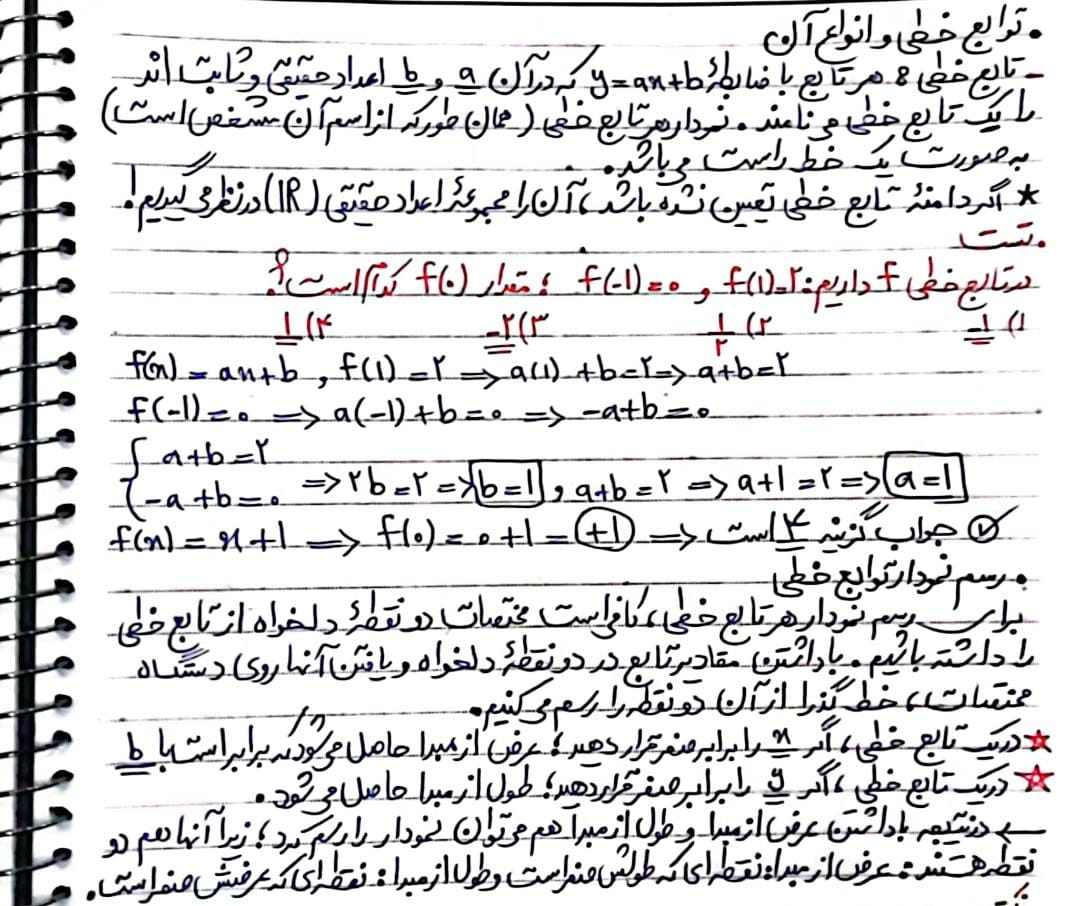 • توابع خطی و انواع آن
- تابع خطی: هر تابع با ضابطهٔ y=ax+b که در آن a و b اعداد حقیقی و ثابت اند
را یک تابع خطی می نامند. نمودار هر تابع خطی (همان طور که از اسم آن مشخص است)
به صورت یک خط راست می باشد.
★ اگر دامنهٔ تابع خطی تعیین نشده باشد، آن را مجموعهٔ اعداد حقیقی (IR) در نظر می گیریم!
• تست
در تابع خطی f داریم: f(1)=۲ و f(-1)=۰ ؛ مقدار f(۰) کدام است؟
۱) -۱ ۲) ۱/۲ ۳) -۲ ۴) ۱
f(x) = ax+b , f(1) = ۲ ⇒ a(1) + b = ۲ ⇒ a+b=۲
f(-1) = ۰ ⇒ a(-1)+b=۰ ⇒ -a+b=۰
{ a+b=۲
{ -a+b=۰ ⇒ ۲b=۲ ⇒ b=1 , a+b=۲ ⇒ a+1=۲ ⇒ a=1
f(x) = x+1 ⇒ f(۰) = ۰+1 = +1 ⇒ جواب گزینه ۴ است
• رسم نمودار توابع خطی
برای رسم نمودار هر تابع خطی، کافی است مختصات دو نقطهٔ دلخواه از تابع خطی
را داشته باشیم. با داشتن مقادیر تابع در دو نقطهٔ دلخواه و یافتن آنها روی دستگاه
مختصات، خط گذرا از آن دو نقطه را رسم می کنیم.
★ در یک تابع خطی، اگر x را برابر صفر قرار دهید؛ عرض از مبدا حاصل می شود که برابر است با b
★ در یک تابع خطی، اگر y را برابر صفر قرار دهید؛ طول از مبدا حاصل می شود.
← در نتیجه با داشتن عرض از مبدا و طول از مبدا هم می توان نمودار را رسم کرد؛ زیرا آنها هم دو
نقطه هستند: عرض از مبدا: نقطه ای که طولش صفر است و طول از مبدا: نقطه ای که عرضش صفر است.